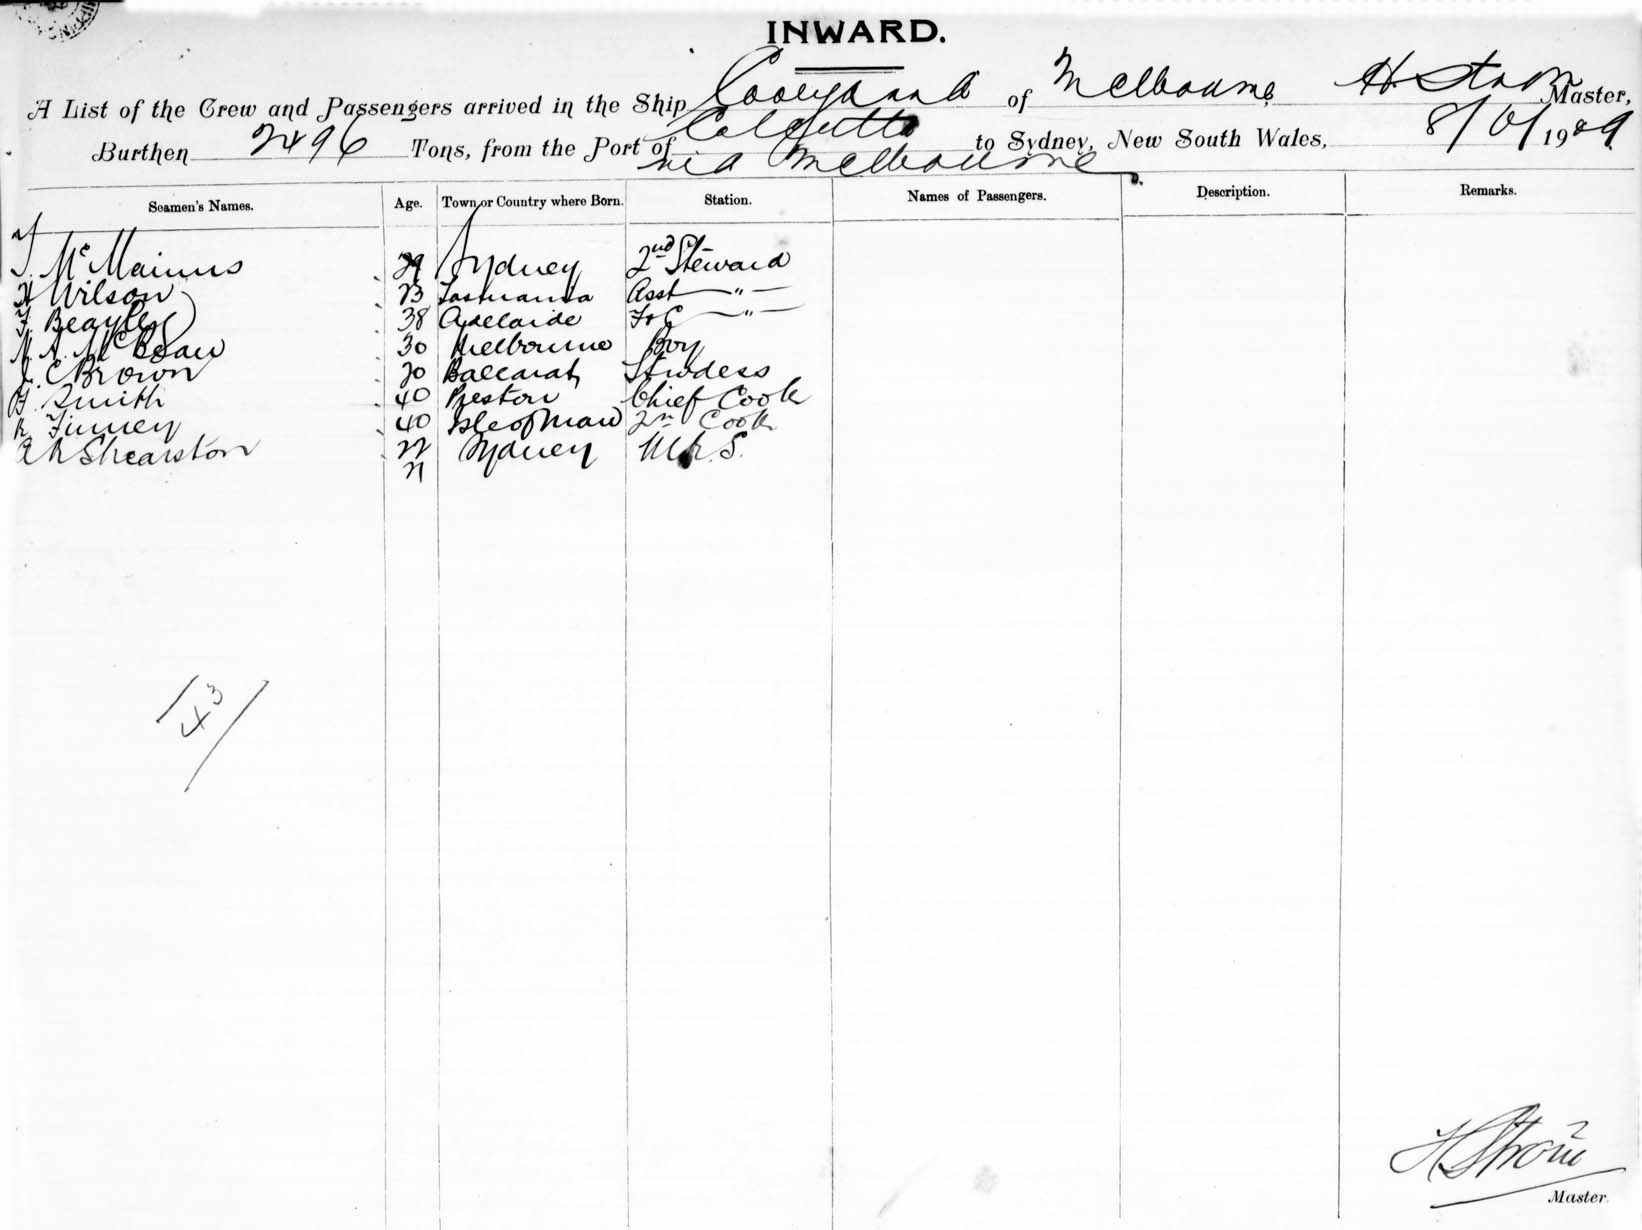 INWARD.
A List of the Crew and Passengers arrived in the Ship Cooeyanna of Melbourne H Strom Master,
Burthen 2496 Tons, from the Port of Calcutta via Melbourne to Sydney, New South Wales, 8/10/1909
Seamen's Names. Age. Town or Country where Born. Station. Names of Passengers. Description. Remarks.
McMainus 29 Sydney 2nd Steward
H Wilson 23 Tasmania Asst — " —
F. Beayley 38 Adelaide F & C — " —
McBean 30 Melbourne Boy
C Brown 20 Ballarat Stwdess
Smith 40 Preston Chief Cook
R Finney 40 Isle of Man 2nd Cook
R Shearston 22 Sydney M.R.S.
21
43
H Strom
Master.